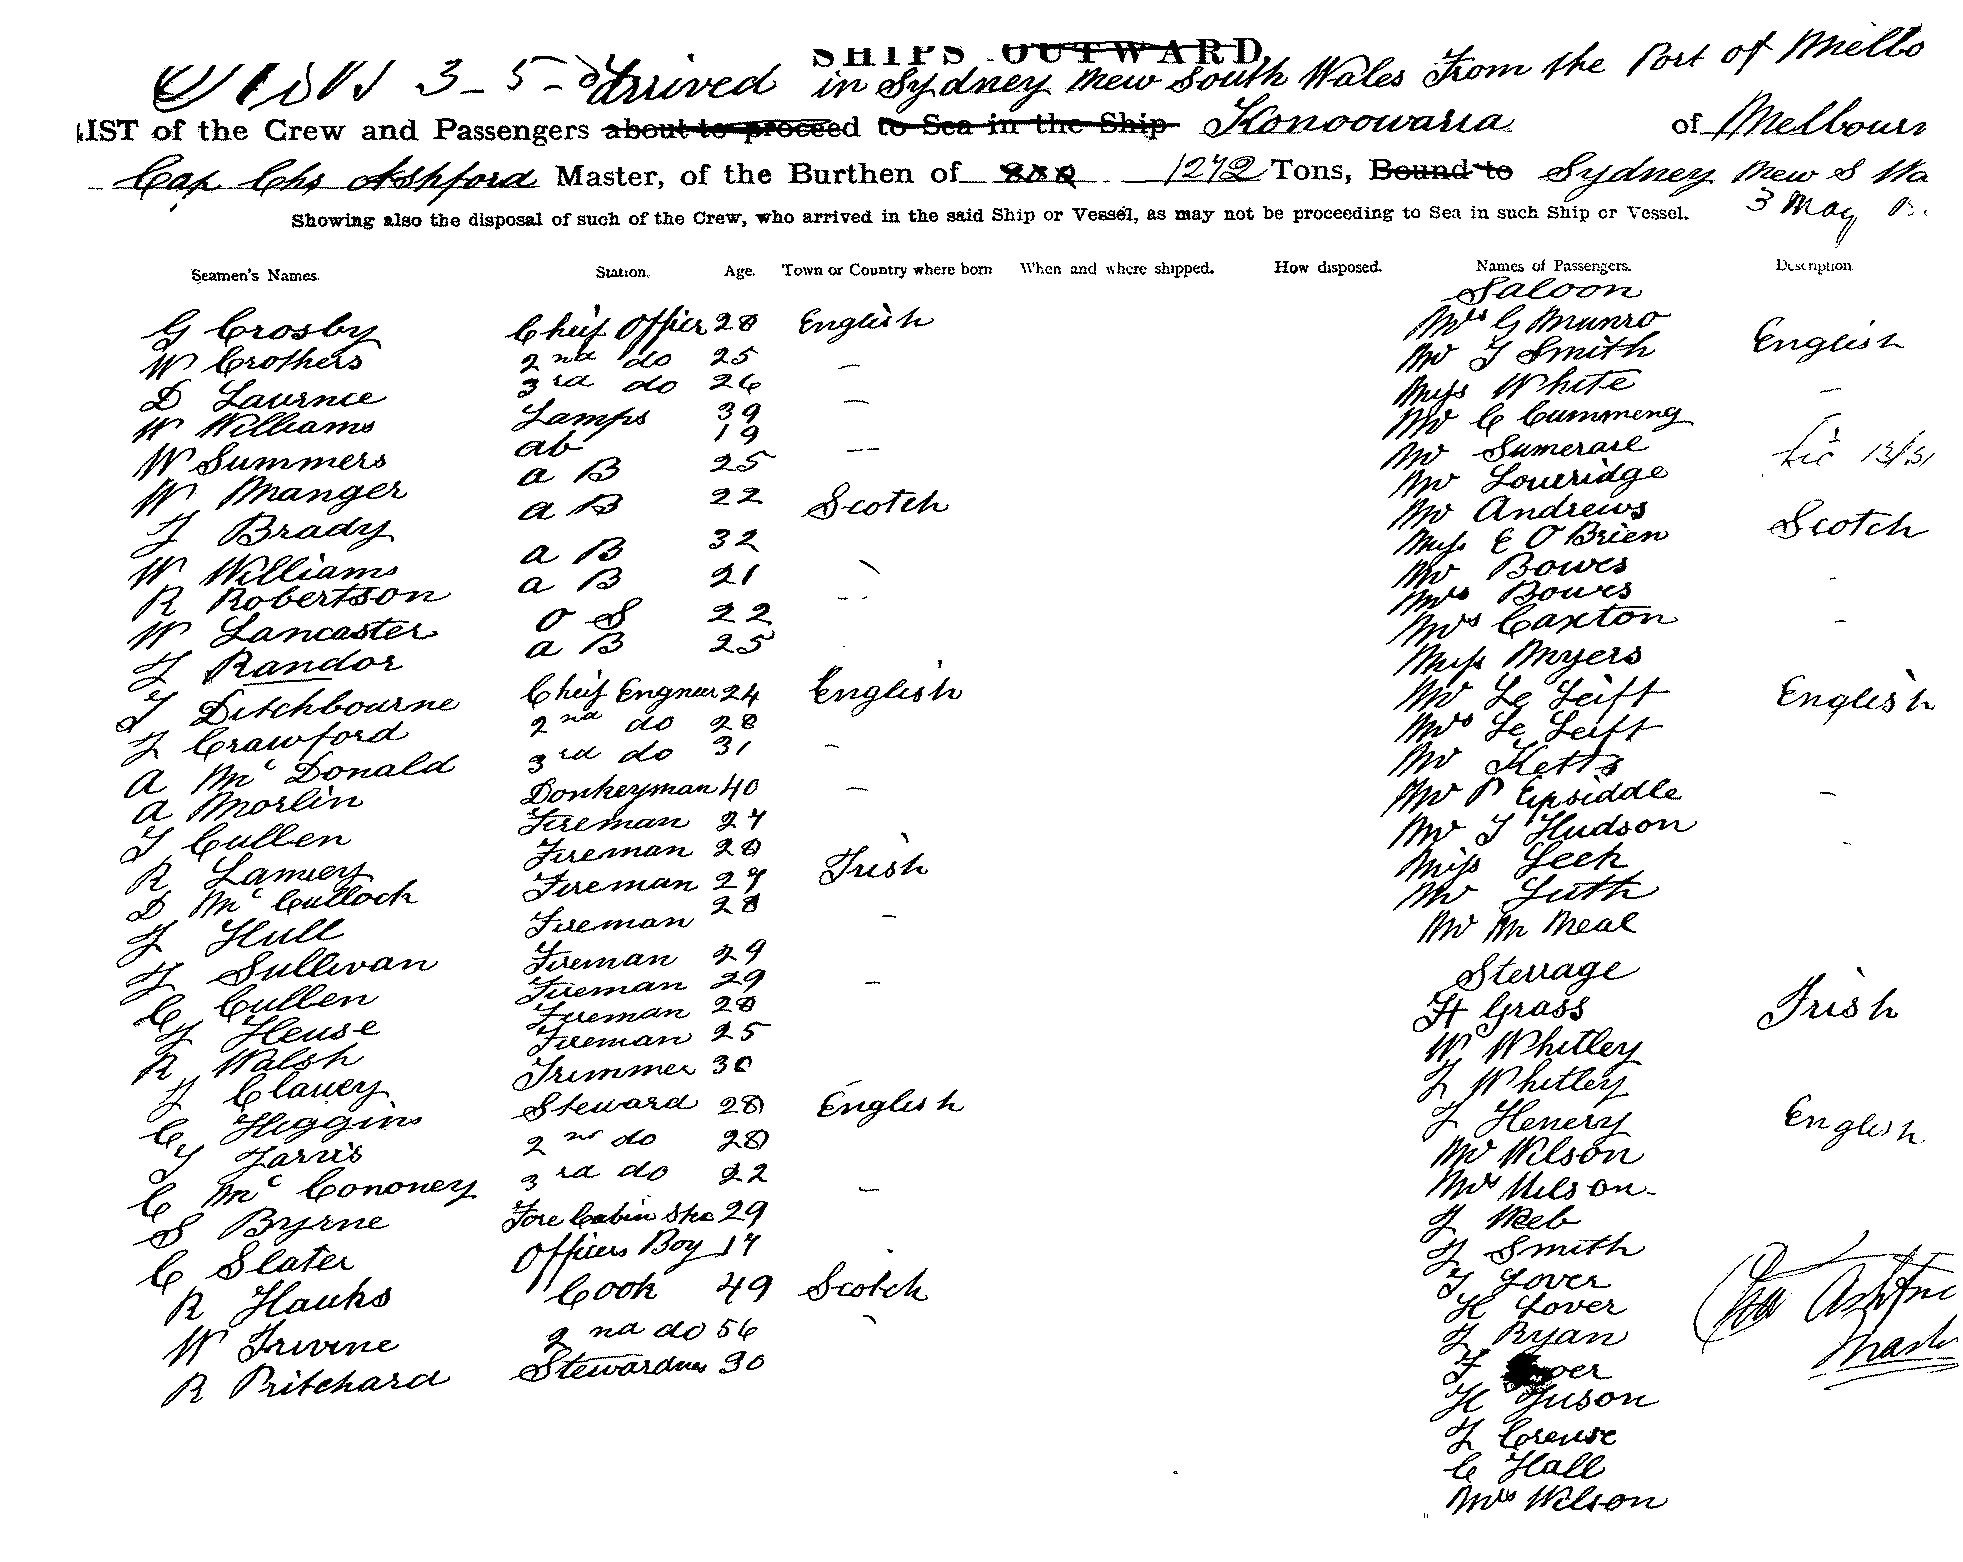 SHIPS OUTWARD
3 - 5 - Arrived in Sydney New South Wales From the Port of Melbo
LIST of the Crew and Passengers about to proceed to Sea in the Ship Konoowarra of Melbourn
Cap Chs Ashford Master, of the Burthen of 1272 Tons, Bound to Sydney New S Wa
Showing also the disposal of such of the Crew, who arrived in the said Ship or Vessel, as may not be proceeding to Sea in such Ship or Vessel. 3 May
Seamen's Names. Station. Age. Town or Country where born When and where shipped. How disposed. Names of Passengers. Description
G Crosby Chief Officer 28 English
W Crothers 2nd do 25 —
D Laurnce 3rd do 26
W Williams Lamps 39 —
W Summers ab 19
W Manger a B 25 —
J Brady a B 22 Scotch
W Williams a B 32
R Robertson a B 21
W Lancaster O S 22
J Randor a B 25
T Ditchbourne Chief Engneer 24 English
J Crawford 2nd do 28
A Mc Donald 3rd do 31 —
A Morlin Donkeyman 40 —
T Cullen Fireman 27
R Lamey Fireman 28
D Mc Culloch Fireman 27 Irish
J Hull Fireman 28 —
J Sullivan Fireman 29
C Cullen Fireman 29 —
J Heuse Fireman 28
R Walsh Fireman 25
J Clavey Trimmer 30
C Higgins Steward 28 English
T Jarvis 2nd do 28
C Mc Cononey 3rd do 22 —
S Byrne Fore Cabin Ste 29
C Slater Officers Boy 17
R Hauks Cook 49 Scotch
W Irvine 2nd do 56
R Pritchard Stewardess 30
Saloon
Mrs G Munro
Mr J Smith English
Miss White —
Mr C Cummeng
Mr Sumerase
Mr Loueridge
Mr Andrews Scotch
Miss E O'Brien
Mr Bowes
Mrs Bowes
Mrs Caxton
Miss Myers
Mr Le Leift English
Mrs Le Leift
Mr Ketts
Mr P Epsiddle —
Mr J Hudson
Miss Leek
Mr Luth
Mr M Meal
Sterrage
H Grass Irish
W Whitley
J Whitley
J Henery English
Mr Wilson
Mrs Nelson
J Web
J Smith
T Lover
H Lover
J Ryan
H Juson
J Creuse
C Hall
Mrs Wilson